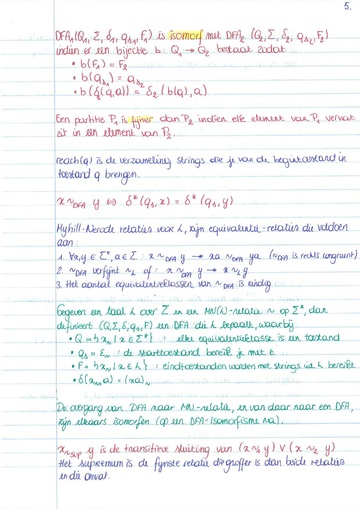 5.
DFA₁(Q₁, Σ, δ₁, q_s₁, F₁) is isomorf met DFA₂ (Q₂, Σ, δ₂, q_s₂, F₂)
indien er een bijectie b: Q₁ → Q₂ bestaat zodat
• b(F₁) = F₂
• b(q_s₁) = q_s₂
• b(δ₁(q,a)) = δ₂ (b(q), a)
Een partitie P₁ is fijner dan P₂ indien elk element van P₁ vervat
zit in een element van P₂.
reach(q) is de verzameling strings die je van de begintoestand in
toestand q brengen.
x ~DFA y ⟺ δ* (q_s, x) = δ* (q_s, y)
Myhill-Nerode relaties voor L, zijn equivalentie-relaties die voldoen
aan:
1. ∀x,y ∈ Σ*, a ∈ Σ : x ~DFA y → xa ~DFA ya (~DFA is rechts congruent).
2. ~DFA verfijnt ~L of : x ~DFA y → x ~L y
3. Het aantal equivalentieklassen van ~DFA is eindig.
Gegeven een taal L over Σ en een MN(L)-relatie ~ op Σ*, dan
definieert (Q, Σ, δ, q_s, F) een DFA die L bepaalt, waarbij
• Q = {x~ | x ∈ Σ*} : elke equivalentieklasse is een toestand
• q_s = ε~ : de starttoestand bereik je met ε
• F = {x~ | x ∈ L} : eindtoestanden worden met strings uit L bereikt
• δ(x~, a) = (xa)~
De overgang van DFA naar MN-relatie, en van daar naar een DFA,
zijn elkaars isomorfen (op een DFA-isomorfisme na).
x ~sup y is de transitieve sluiting van (x ~₁ y) ∨ (x ~₂ y)
Het supremum is de fijnste relatie die groffer is dan beide relaties
en die omvat.